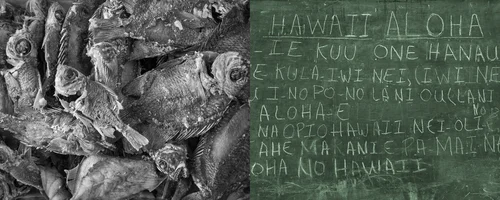 HAWAII ALOHA
-IE KUU ONE HANAU
E KULA-IWI NEI, (IWI NE
I-NO PO-NO LANI OU (LANI
ALOHA-E
NA OPIO HAWAII NEI-OLI
AHE MAKANI E PA MAI NA
OHA NO HAWAII